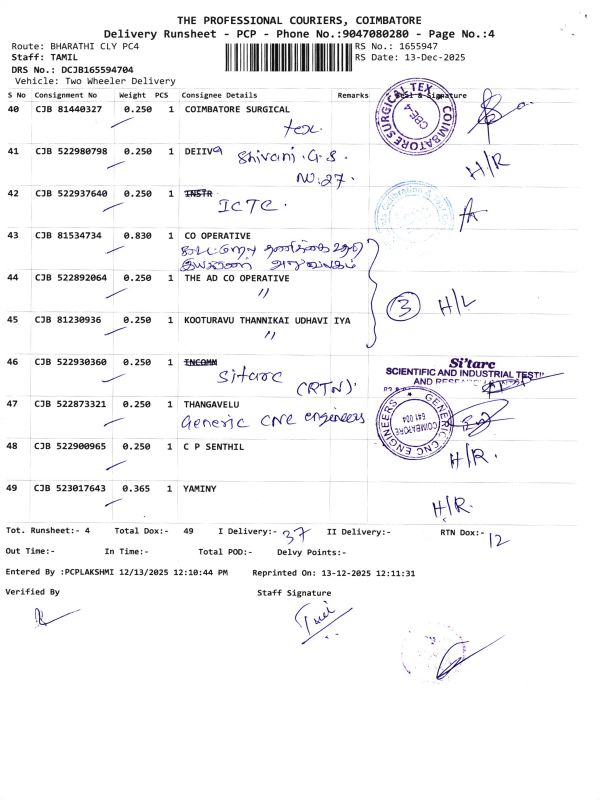 THE PROFESSIONAL COURIERS, COIMBATORE
Delivery Runsheet - PCP - Phone No.:9047080280 - Page No.:4
Route: BHARATHI CLY PC4 RS No.: 1655947
Staff: TAMIL RS Date: 13-Dec-2025
DRS No.: DCJB165594704
Vehicle: Two Wheeler Delivery
S No Consignment No Weight PCS Consignee Details Remarks Signature
40 CJB 81440327 0.250 1 COIMBATORE SURGICAL
tex.
COIMBATORE SURGICAL TEX CBE-4
41 CJB 522980798 0.250 1 DEIIVA Shivani.G.S. H/R
No:27.
42 CJB 522937640 0.250 1 INSTR
ICTC.
43 CJB 81534734 0.830 1 CO OPERATIVE
கூட்டுறவு தணிக்கை உதவி
இயக்குனர் அலுவலகம்
44 CJB 522892064 0.250 1 THE AD CO OPERATIVE
"
3 H/L
45 CJB 81230936 0.250 1 KOOTURAVU THANNIKAI UDHAVI IYA
"
46 CJB 522930360 0.250 1 INCOMM
Sitarc (RTN)
Si'tarc
SCIENTIFIC AND INDUSTRIAL TESTI
AND
47 CJB 522873321 0.250 1 THANGAVELU
Generic CNC engineers
GENERIC CNC ENGINEERS COIMBATORE 641 004
48 CJB 522900965 0.250 1 C P SENTHIL H/R.
49 CJB 523017643 0.365 1 YAMINY H/R.
Tot. Runsheet:- 4 Total Dox:- 49 I Delivery:- 37 II Delivery:- RTN Dox:- 12
Out Time:- In Time:- Total POD:- Delvy Points:-
Entered By :PCPLAKSHMI 12/13/2025 12:10:44 PM Reprinted On: 13-12-2025 12:11:31
Verified By Staff Signature